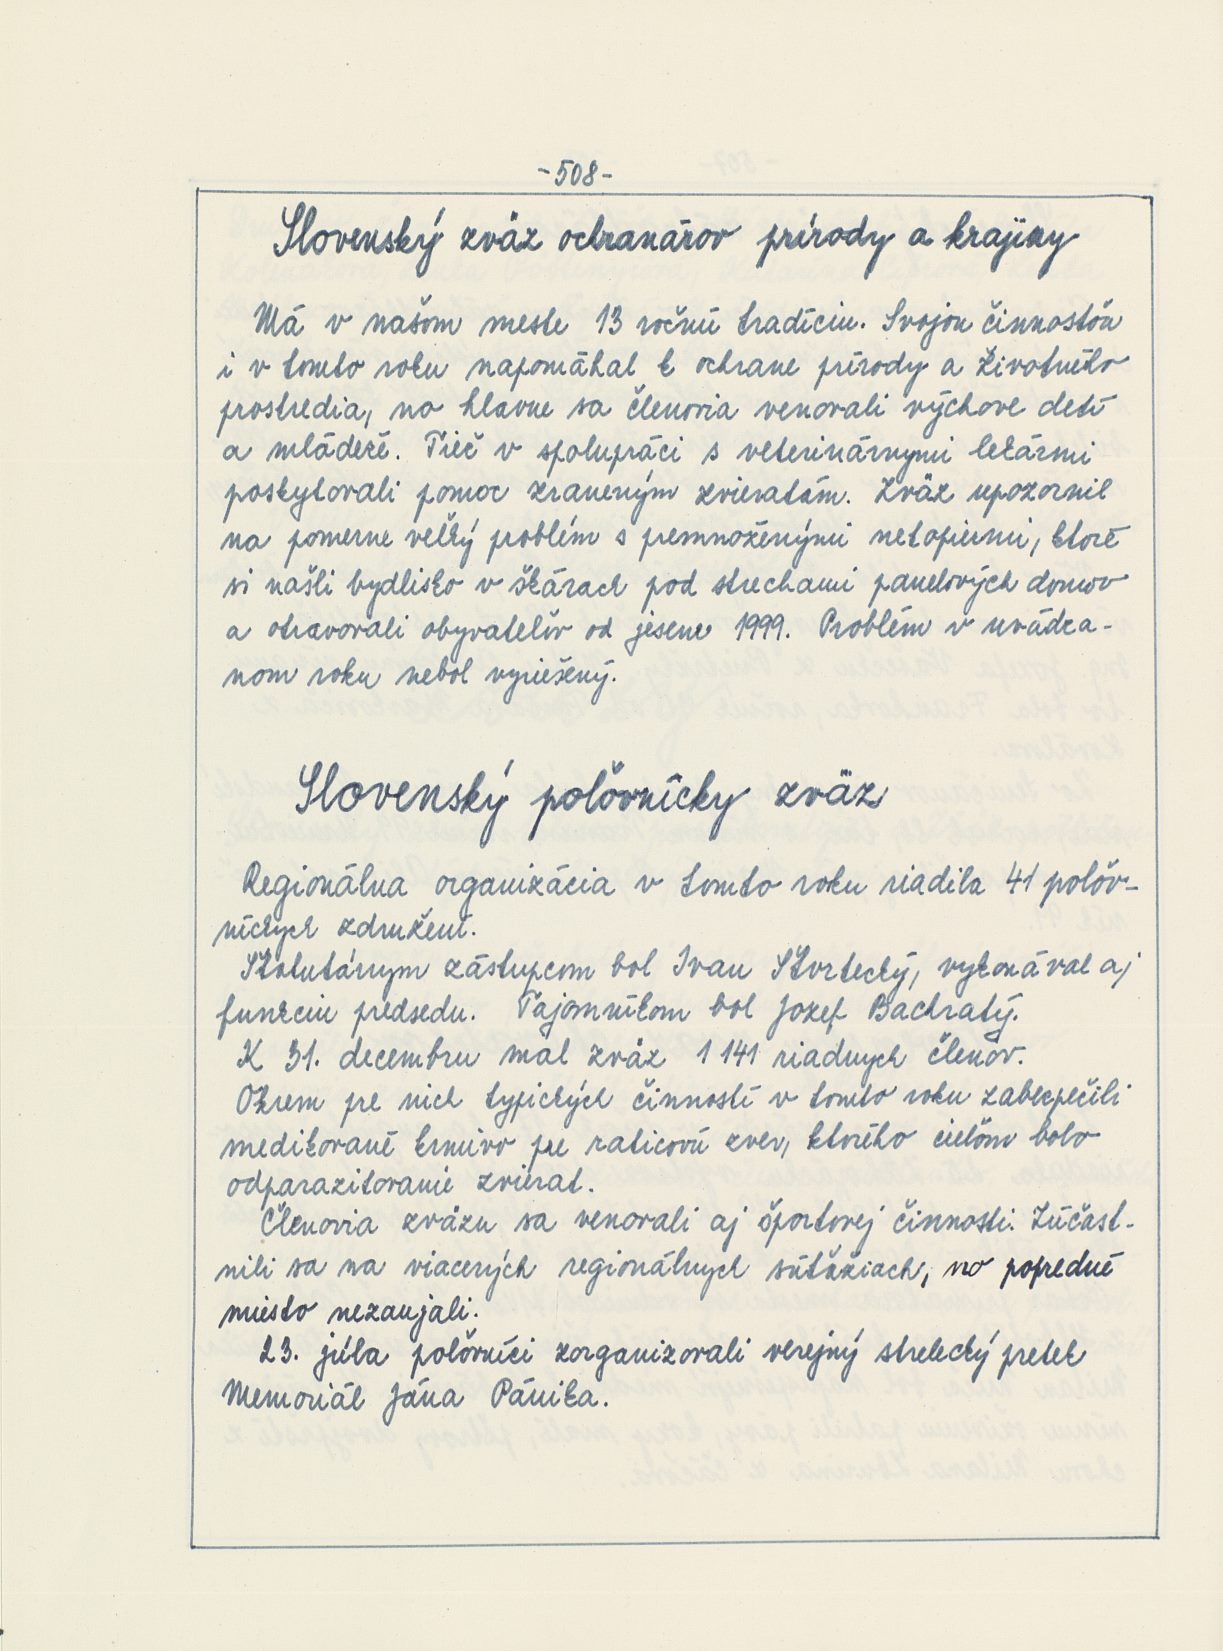 -508-
Slovenský zväz ochranárov prírody a krajiny
Má v našom meste 13 ročnú tradíciu. Svojou činnosťou
i v tomto roku napomáhal k ochrane prírody a životného
prostredia, no hlavne sa členovia venovali výchove detí
a mládeže. Tiež v spolupráci s veterinárnymi lekármi
poskytovali pomoc zraneným zvieratám. Zväz upozornil
na pomerne veľký problém s premnoženými netopiermi, ktoré
si našli bydlisko v škárach pod strechami panelových domov
a otravovali obyvateľov od jesene 1999. Problém v uvádza-
nom roku nebol vyriešený.
Slovenský poľovnícky zväz
Regionálna organizácia v tomto roku riadila 41 poľov-
níckych združení.
Štatutárnym zástupcom bol Ivan Štvrtecký, vykonával aj
funkciu predsedu. Tajomníkom bol Jozef Bachratý.
K 31. decembru mal zväz 1 141 riadnych členov.
Okrem pre nich typických činností v tomto roku zabezpečili
medikované krmivo pre raticovú zver, ktorého cieľom bolo
odparazitovanie zvierat.
Členovia zväzu sa venovali aj športovej činnosti. Zúčast-
nili sa na viacerých regionálnych súťažiach, no popredné
miesto nezaujali.
23. júla poľovníci zorganizovali verejný strelecký pretek
Memoriál Jána Pánika.